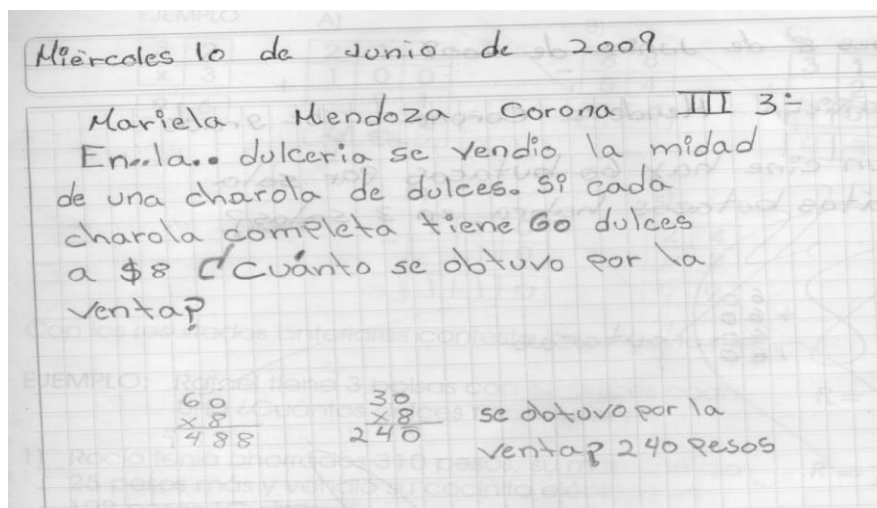 Miércoles 10 de Junio de 2009
Mariela Mendoza Corona III 3:
En..la.. dulceria se vendio la midad
de una charola de dulces. Si cada
charola completa tiene 60 dulces
a $8 ¿Cuánto se obtuvo por la
venta?
60
x 8
488
30
x 8
240
se obtuvo por la
venta? 240 pesos